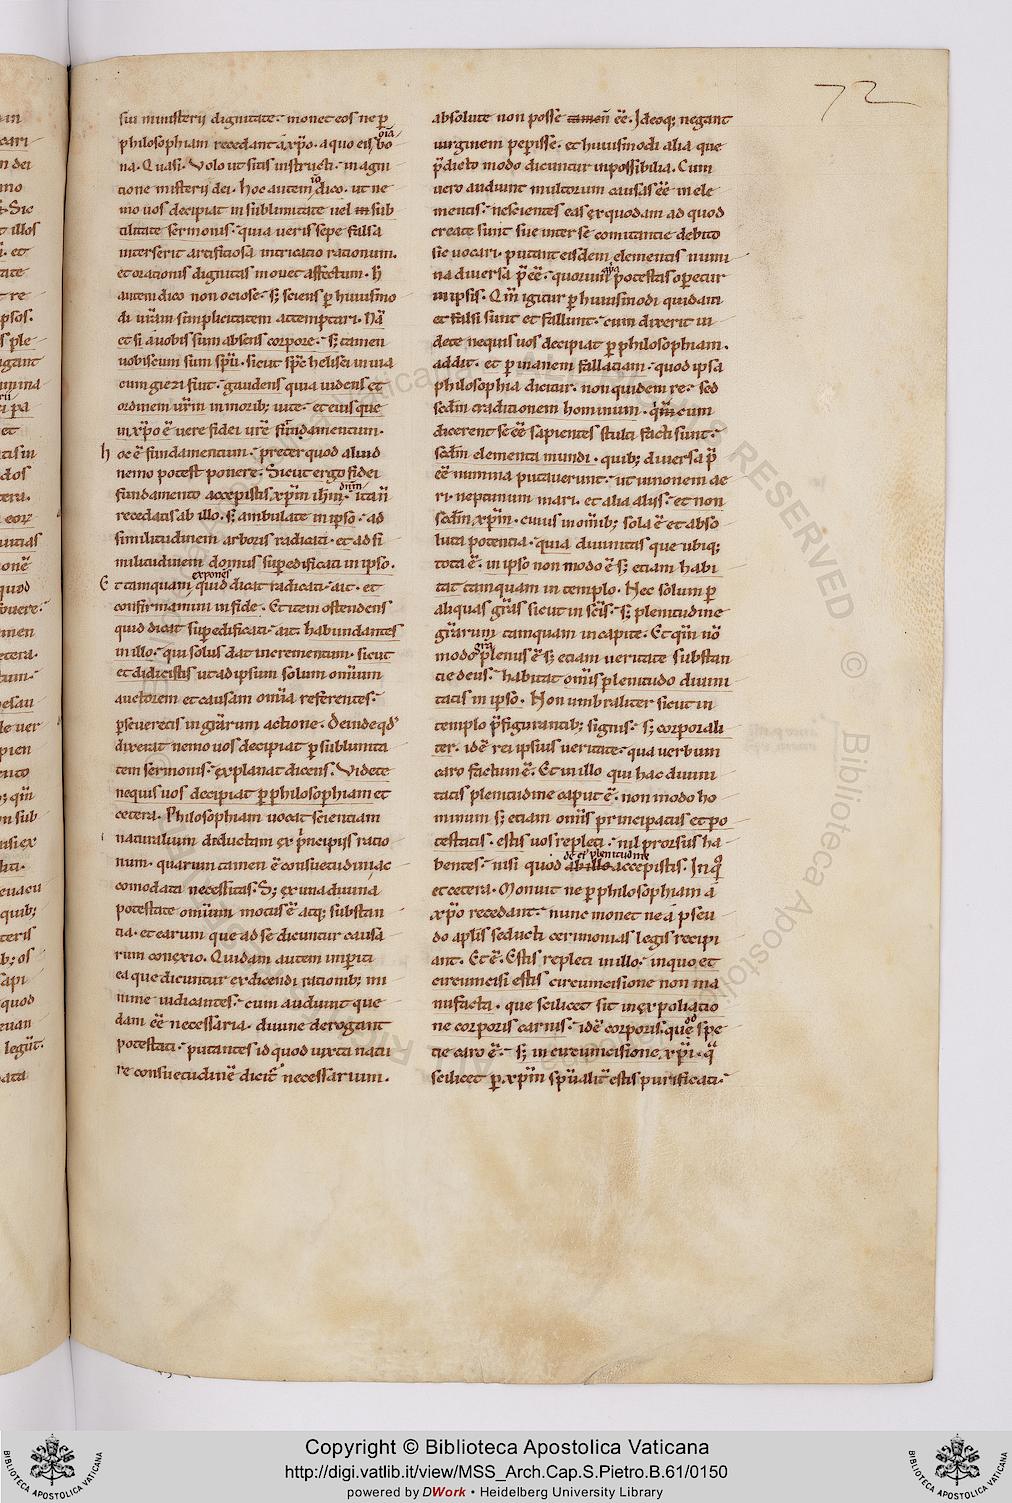 72
sui ministerii dignitate. monet eos ne p̲
philosophiam recedant a xp̄o. a quo eis oīa bo
na. Quasi. Volo ut sitis instructi. in agni
tione misterii dei. hoc autem iō dico. ut ne
mo uos decipiat in sublimitate uel sub
tilitate sermonis. quia ueris sepe falsa
interserit artificiosa intricatio rationum.
et orationis dignitas mouet affectum. h̄
autem dico non ociose. sꝫ sciens p̲ huiusmo
di ur̄am simplicitatem attemptari. Nā
et si a uobis sum absens corpore. sꝫ tamen
uobiscum sum sp̄u. sicut sp̄c helisei in uia
cum giezi fuit. gaudens quia uidens et
ordinem ur̄m in morib; uite. et eius que
in xp̄o ē uere fidei ur̄e fundamentum.
hoc ē fundamentum. preter quod aliud
nemo potest ponere. Sicut ergo fidei
fundamento accepistis xp̄m ih̄m dn̄m. ita n̄
recedatis ab illo. sꝫ ambulate in ipso. ad
similitudinem arboris radicati. et ad si
militudinem domus sup̲edificati in ipso.
Et tamquam exponēs quid dicat radicati. ait. et
confirmamini in fide. Et item ostendens
quid dicat sup̲edificati. ait. habundantes
in illo. qui solus dat incrementum. sicut
et didicistis ut ad ipsum solum omīum
auctorem et causam omīa referentes.
p̲seueretis in grārum actione. Deinde qd̄
dixerat nemo uos decipiat p̲ sublimita
tem sermonis. explanat dicens. Videte
nequis uos decipiat p̲ philosophiam et
cetera. Philosophiam uocat scientiam
naturalium diductam ex principiis ratio
num. quarum tamen ē consuetudini ac
comodata necessitas. Sꝫ ex una diuina
potestate omīum motus ē atq; substan
tia. et earum que ad se dicuntur causa
rum conexio. Quidam autem imp̲iti
ea que dicuntur ex dicendi rationib; mi
nime iudicantes. cum audiunt que
dam eē necessaria. diuine derogant
potestati. putantes id quod iuxta natu
re consuetudinē dicit̄ necessarium.
absolute non posse n̄ eē. Ideoq; negant
uirginem pep̲isse. et huiusmodi alia que
p̄dicto modo dicuntur inpossibilia. Cum
uero audiunt multorum causas eē in ele
mentis. nescientes eas ex quodam ad quod
create sunt sue inter se comitantie debito
sic uocari. putant eisdem elementis numi
na diuersa p̄eē. quorum p̄pa potestas op̲etur
in ipsis. Qm̄ igitur p̲ huiusmodi quidam
et falsi sunt et fallunt. cum dixerit ui
dete nequis uos decipiat p̲ philosophiam.
addit. et p̲ inanem fallaciam. quod ipsa
philosophia dicitur. non quidem re. sed
scdm̄ traditionem hominum. qm̄ cum
dicerent se eē sapientes stulti facti sunt.
scdm̄ elementa mundi. quib; diuersa p̄
eē numina putauerunt. ut iunonem ae
ri. neptunum mari. et alia aliis. et non
scdm̄ xp̄m. cuius in omīb; sola ē et abso
luta potentia. quia diuinitas que ubiq;
tota ē. in ipso non modo ē sꝫ etiam habi
tat tamquam in templo. Nec solum p̲
aliquas grās sicut in scīs. sꝫ plenitudine
grārum tamquam in capite. Et qm̄ nō
modo grā plenus ē sꝫ etiam ueritate substan
tie deus. habitat omīs plenitudo diuini
tatis in ipso. Non umbraliter sicut in
templo p̄figurantib; signis. sꝫ corporali
ter. idē rei ipsius ueritate. qua uerbum
caro factum ē. Et in illo qui hac diuini
tatis plenitudine caput ē. non modo ho
minum sꝫ etiam omīs principatus et po
testatis. estis uos repleti. nil prorsus ha
bentes. nisi quod de ei plenitudine accepistis. In q̄
et cetera. Monuit ne p̲ philosophiam a
xp̄o recedant. nunc monet ne a pseu
do aplīs seducti cerimonias legis recipi
ant. Et ē. Estis repleti in illo. in quo et
circumcisi estis circumcisione non ma
nufacta. que scilicet sit in expoliatio
ne corporis carnis. idē corporis quod spe
cie caro ē. sꝫ in circumcisione xp̄i. q̄
scilicet p̲ xp̄m sp̄ualit̄ estis purificati.
Copyright © Biblioteca Apostolica Vaticana
http://digi.vatlib.it/view/MSS_Arch.Cap.S.Pietro.B.61/0150
powered by DWork • Heidelberg University Library
BIBLIOTECA APOSTOLICA VATICANA
BIBLIOTECA APOSTOLICA VATICANA